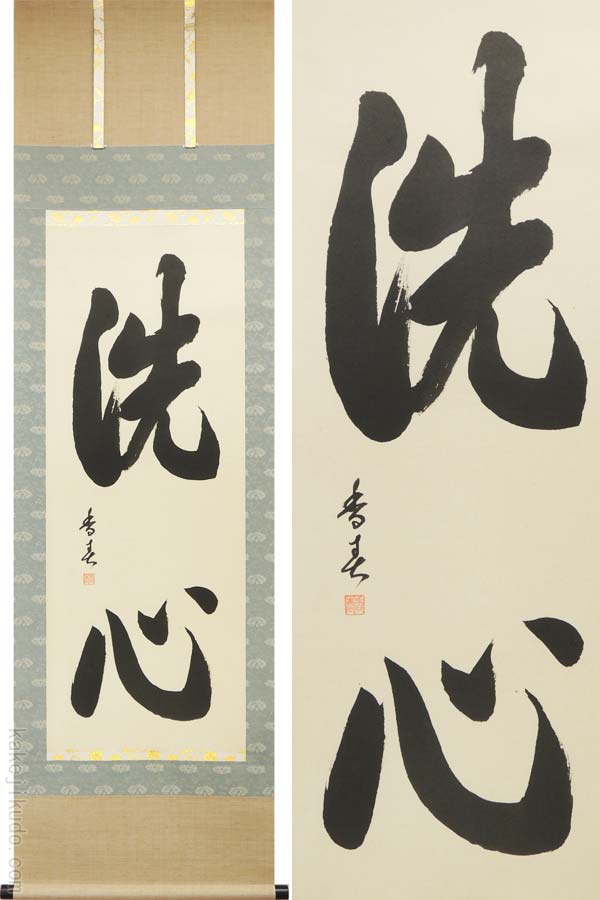 洗心
香春
洗心
香春
kakejikudo.com